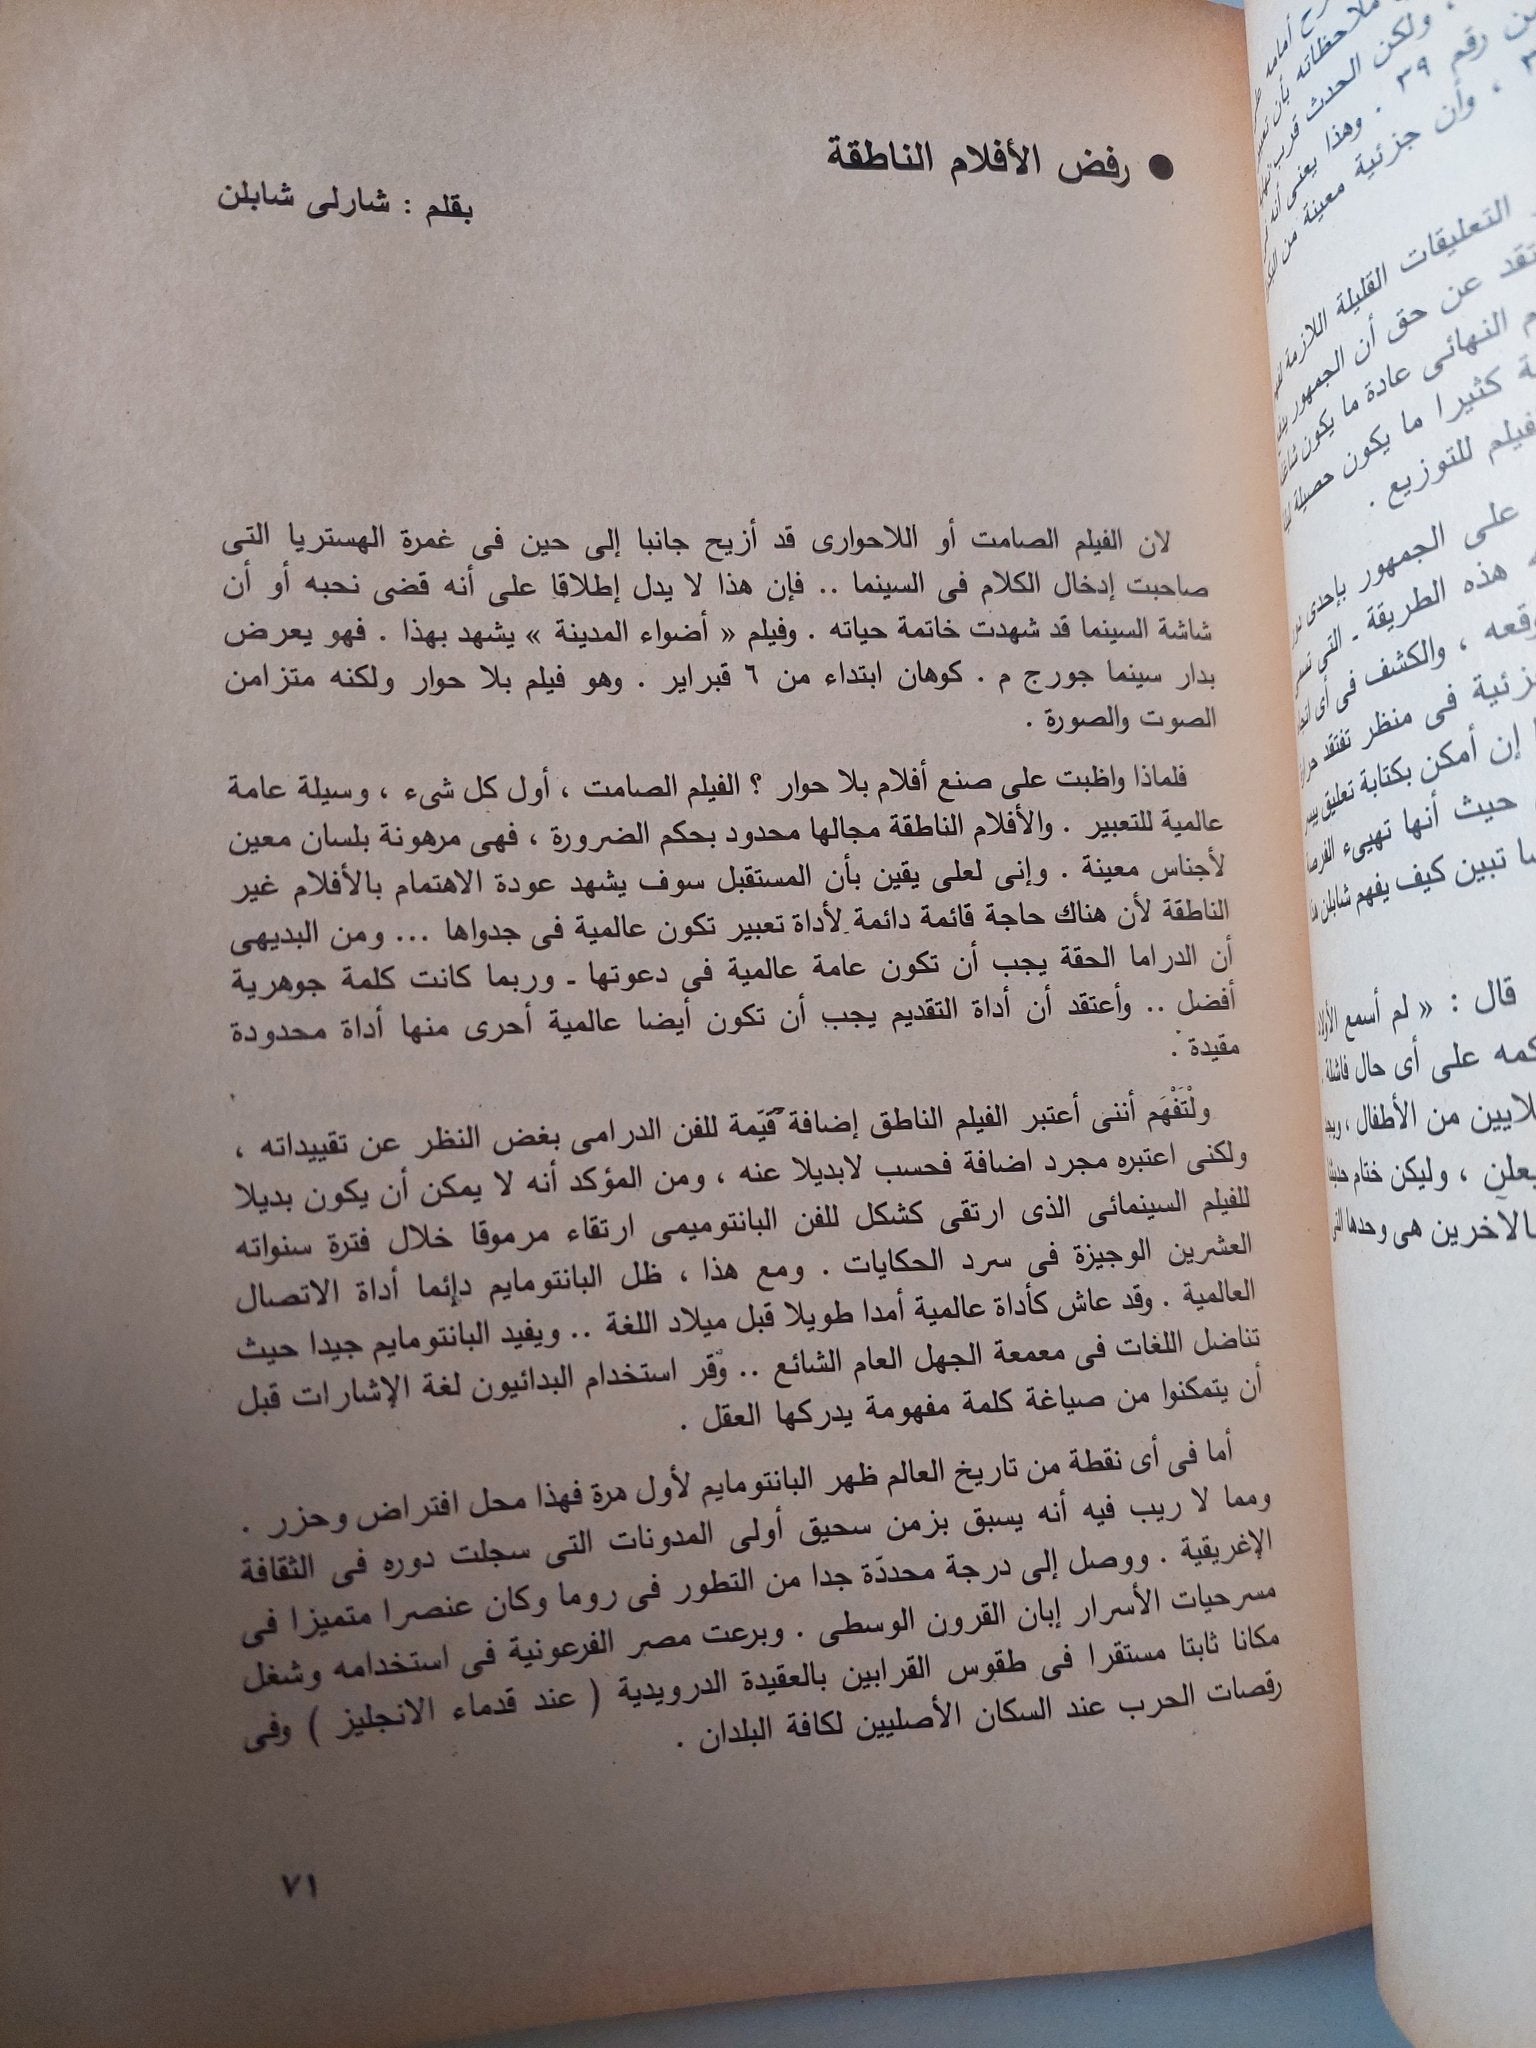 ● رفض الأفلام الناطقة
بقلم : شارلى شابلن
لان الفيلم الصامت أو اللاحوارى قد أزيح جانبا إلى حين فى غمرة الهستريا التى
صاحبت إدخال الكلام فى السينما .. فإن هذا لا يدل إطلاقا على أنه قضى نحبه أو أن
شاشة السينما قد شهدت خاتمة حياته . وفيلم « أضواء المدينة » يشهد بهذا . فهو يعرض
بدار سينما جورج م . كوهان ابتداء من ٦ قبراير . وهو فيلم بلا حوار ولكنه متزامن
الصوت والصورة .
فلماذا واظبت على صنع أفلام بلا حوار ؟ الفيلم الصامت ، أول كل شىء ، وسيلة عامة
عالمية للتعبير . والأفلام الناطقة مجالها محدود بحكم الضرورة ، فهى مرهونة بلسان معين
لأجناس معينة . وإنى لعلى يقين بأن المستقبل سوف يشهد عودة الاهتمام بالأفلام غير
الناطقة لأن هناك حاجة قائمة دائمة لأداة تعبير تكون عالمية فى جدواها ... ومن البديهى
أن الدراما الحقة يجب أن تكون عامة عالمية فى دعوتها - وربما كانت كلمة جوهرية
أفضل .. وأعتقد أن أداة التقديم يجب أن تكون أيضا عالمية أحرى منها أداة محدودة
مقيدة .
ولْتَفْهَم أننى أعتبر الفيلم الناطق إضافة قيّمة للفن الدرامى بغض النظر عن تقييداته ،
ولكنى اعتبره مجرد اضافة فحسب لابديلا عنه ، ومن المؤكد أنه لا يمكن أن يكون بديلا
للفيلم السينمائى الذى ارتقى كشكل للفن البانتوميمى ارتقاء مرموقا خلال فترة سنواته
العشرين الوجيزة فى سرد الحكايات . ومع هذا ، ظل البانتومايم دائما أداة الاتصال
العالمية . وقد عاش كأداة عالمية أمدا طويلا قبل ميلاد اللغة .. ويفيد البانتومايم جيدا حيث
تناضل اللغات فى معمعة الجهل العام الشائع .. وقر استخدام البدائيون لغة الإشارات قبل
أن يتمكنوا من صياغة كلمة مفهومة يدركها العقل .
أما فى أى نقطة من تاريخ العالم ظهر البانتومايم لأول مرة فهذا محل افتراض وحزر .
ومما لا ريب فيه أنه يسبق بزمن سحيق أولى المدونات التى سجلت دوره فى الثقافة
الإغريقية . ووصل إلى درجة محددّة جدا من التطور فى روما وكان عنصرا متميزا فى
مسرحيات الأسرار إبان القرون الوسطى . وبرعت مصر الفرعونية فى استخدامه وشغل
مكانا ثابتا مستقرا فى طقوس القرابين بالعقيدة الدرويدية ( عند قدماء الانجليز ) وفى
رقصات الحرب عند السكان الأصليين لكافة البلدان .
٧١
ملاحظاته بأن
ولكن الحدث قرب
رقم ٣٩ . وهذا يعنى أنه
، وأن جزئية معينة من
التعليقات القليلة اللازمة
عن حق أن الجمهور
النهائى عادة ما يكون
كثيرا ما يكون حصيلة
فيلم للتوزيع .
على الجمهور بإحدى
هذه الطريقة - التى
، والكشف فى أى
فى منظر تفتقد
إن أمكن بكتابة تعليق
حيث أنها تهيىء
تبين كيف يفهم شابلن
قال : « لم أسمع
على أى حال فاشلة
من الأطفال ،
، وليكن ختام
هى وحدها